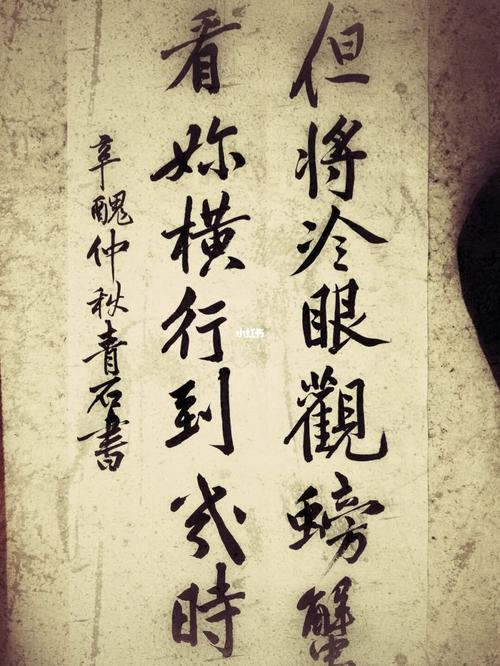 但将冷眼觀螃蟹
看妳橫行到幾時
辛醜仲秋青石書
小红书